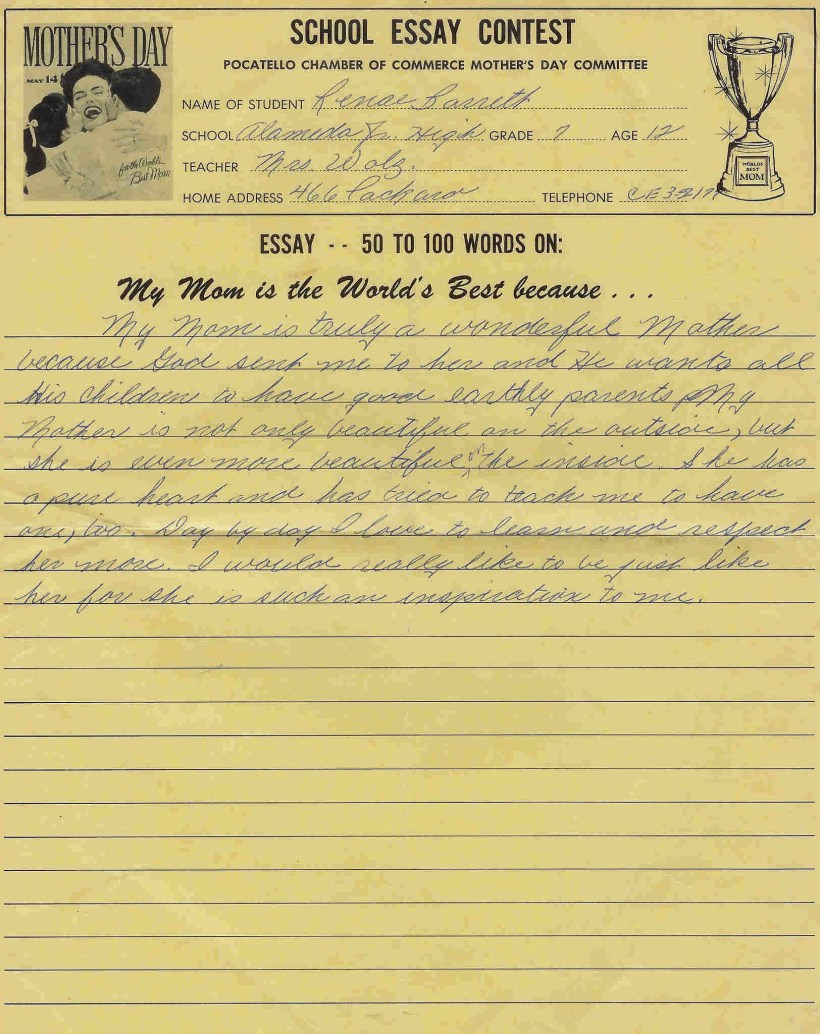 MOTHER'S DAY
MAY 14
for the World's
Best Mom
SCHOOL ESSAY CONTEST
POCATELLO CHAMBER OF COMMERCE MOTHER'S DAY COMMITTEE
NAME OF STUDENT Renae Barrett
SCHOOL Alameda Jr. High GRADE 7 AGE 12
TEACHER Mrs. Wolz.
HOME ADDRESS 466 Packard TELEPHONE
WORLDS
BEST
MOM
ESSAY -- 50 TO 100 WORDS ON:
My Mom is the World's Best because ...
My Mom is truly a wonderful Mother
because God sent me to her and He wants all
His children to have good earthly parents. My
Mother is not only beautiful on the outside, but
she is even more beautiful on the inside. She has
a pure heart and has tried to teach me to have
one, too. Day by day I love to learn and respect
her more. I would really like to be just like
her for she is such an inspiration to me.